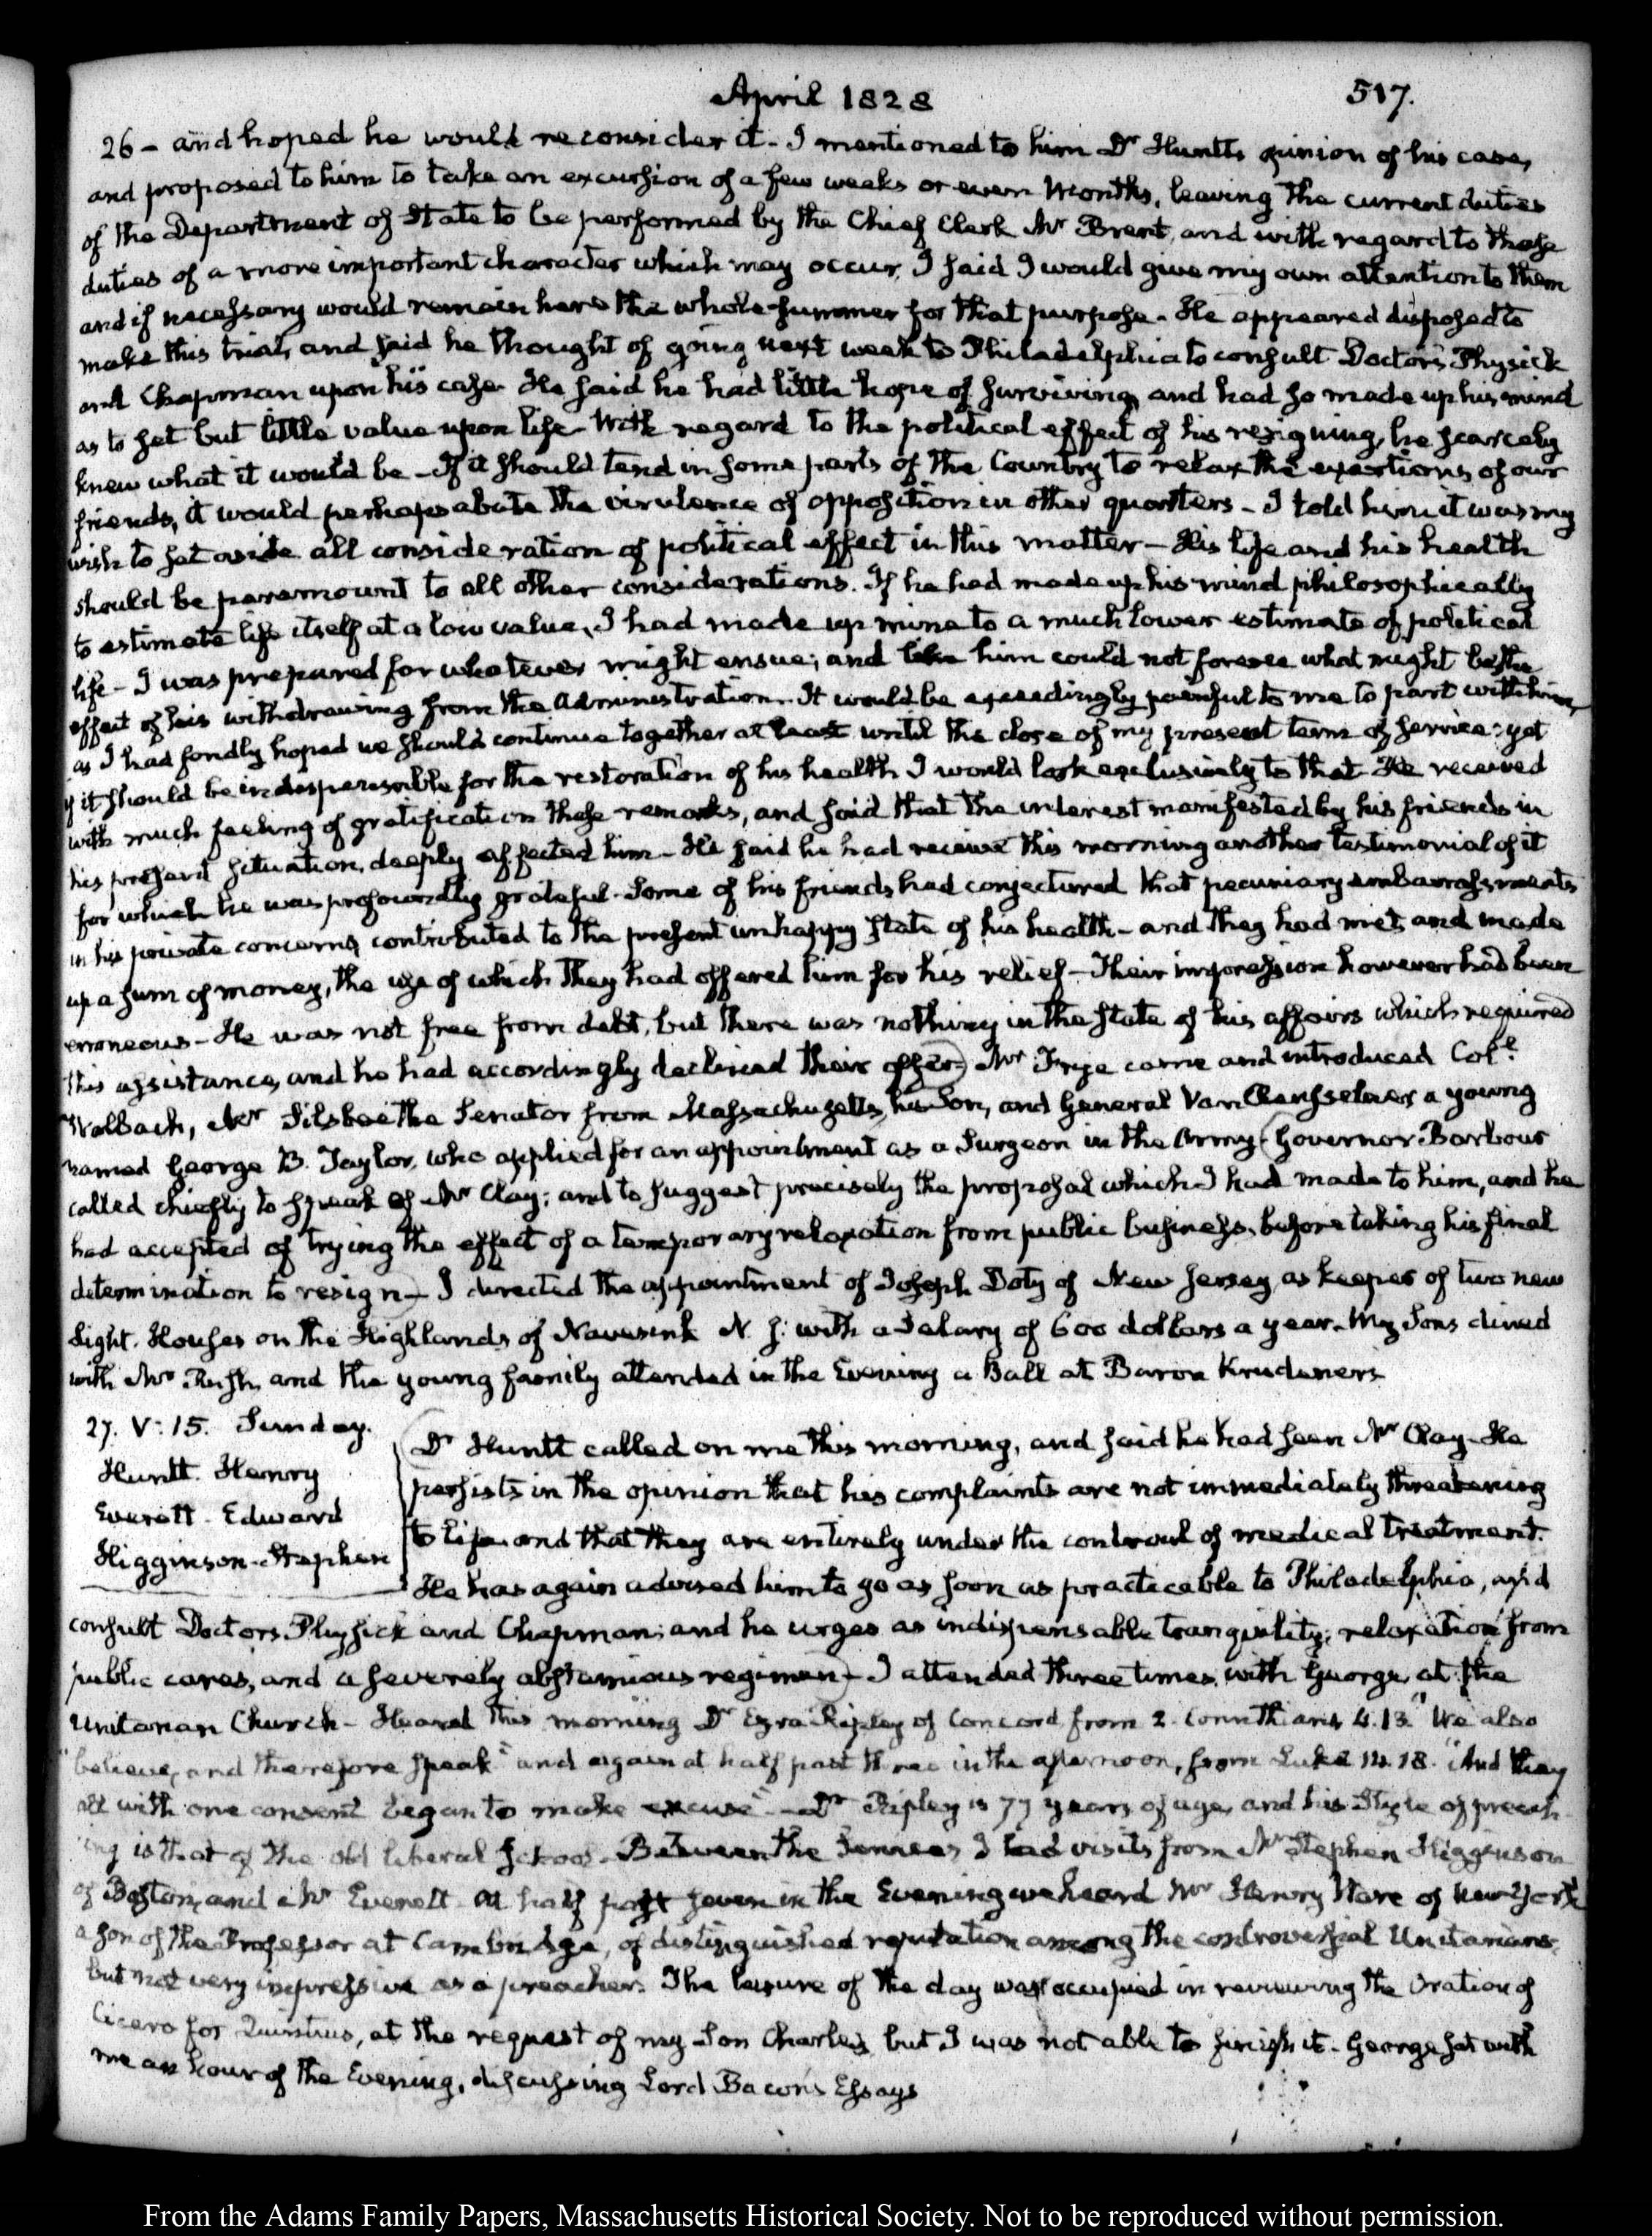 April 1828
517.
26 – and hoped he would reconsider it. I mentioned to him Dr Huntt's opinion of his case,
and proposed to him to take an excursion of a few weeks or even Months, leaving the current duties
of the Department of State to be performed by the Chief Clerk Mr Brent, and with regard to those
duties of a more important character which may occur, I said I would give my own attention to them
and if necessary would remain here the whole summer for that purpose. He appeared disposed to
make this trial, and said he thought of going next week to Philadelphia to consult Doctors Physick
and Chapman upon his case. He said he had little hope of surviving, and had so made up his mind
as to set but little value upon life. With regard to the political effect of his resigning, he scarcely
knew what it would be – If it should tend in some parts of the Country to relax the exertions of our
friends, it would perhaps abate the virulence of opposition in other quarters – I told him it was my
wish to set aside all consideration of political effect in this matter – His life and his health
should be paramount to all other considerations. If he had made up his mind philosophically
to estimate life itself at a low value, I had made up mine to a much lower estimate of political
life – I was prepared for whatever might ensue; and like him could not foresee what might be the
effect of his withdrawing from the Administration. It would be exceedingly painful to me to part with him,
as I had fondly hoped we should continue together at least until the close of my present term of service: yet
if it should be indispensable for the restoration of his health I would look exclusively to that. He received
with much feeling of gratification these remarks, and said that the interest manifested by his friends in
his present situation, deeply affected him – He said he had receive this morning another testimonial of it
for which he was profoundly grateful. Some of his friends had conjectured that pecuniary embarrassments
in his private concerns, contributed to the present unhappy state of his health – and they had met, and made
up a sum of money, the use of which they had offered him for his relief – Their impression however had been
erroneous – He was not free from debt, but there was nothing in the state of his affairs which required
this assistance, and he had accordingly declined their offer) Mr Frye came and introduced Coll.
Walbach, Mr Silsbee the Senator from Massachusetts, his Son, and General Van Rensselaer a young
named George B. Taylor, who applied for an appointment as a Surgeon in the Army (Governor Barbour
called chiefly to speak of Mr Clay; and to suggest precisely the proposal which I had made to him, and he
had accepted of trying the effect of a temporary relaxation from public business, before taking his final
determination to resign) – I directed the appointment of Joseph Doty of New Jersey, as keeper of two new
Light-Houses on the Highlands of Navesink N. J. with a Salary of 600 dollars a year. My Sons dined
with Mr Rush, and the young family attended in the Evening a Ball at Baron Krudener's
27. V: 15. Sunday.
Huntt. Henry
Everett. Edward
Higginson. Stephen
(Dr Huntt called on me this morning, and said he had seen Mr Clay. He
persists in the opinion that his complaints are not immediately threatening
to life, and that they are entirely under the controul of medical treatment.
He has again advised him to go as soon as practicable to Philadelphia, and
consult Doctors Physick and Chapman; and he urges as indispensable tranquility; relaxation from
public cares, and a severely abstemious regimen) – I attended three times, with George, at the
Unitarian Church – Heard this morning Dr Ezra Ripley of Concord from 2. Corinthians 4.13. "We also
"believe, and therefore speak" and again at half past three in the afternoon, from Luke 14.18. "And they
all with one consent began to make excuse" – Dr Ripley is 77 years of age, and his Style of preach-
ing is that of the old liberal school. Between the services I had visits from Mr Stephen Higginson
of Boston, and Mr Everett. At half past seven in the Evening we heard Mr Henry Ware of New-York
a son of the Professor at Cambridge, of distinguished reputation among the controversial Unitarians,
but not very impressive as a preacher. The leisure of the day was occupied in reviewing the Oration of
Cicero for Quintius, at the request of my Son Charles, but I was not able to finish it. George sat with
me an hour of the Evening, discussing Lord Bacon's Essays
From the Adams Family Papers, Massachusetts Historical Society. Not to be reproduced without permission.